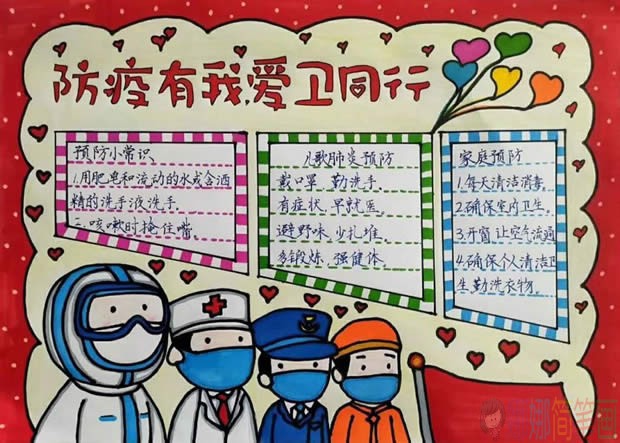 防疫有我，爱卫同行
预防小常识
1.用肥皂和流动的水或含酒
精的洗手液洗手.
二.咳嗽时掩住嘴.
儿歌肺炎预防
戴口罩.勤洗手.
有症状.早就医。
避野味.少扎堆.
多锻炼.强健体.
家庭预防
1.每天清洁消毒.
2.确保室内卫生。
3.开窗让空气流通
4.确保个人清洁卫
生勤洗衣物。
娜简笔画